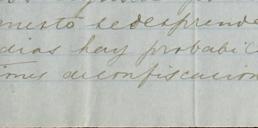 mento se desprende
dias hay probabi
iones deconfiscacion